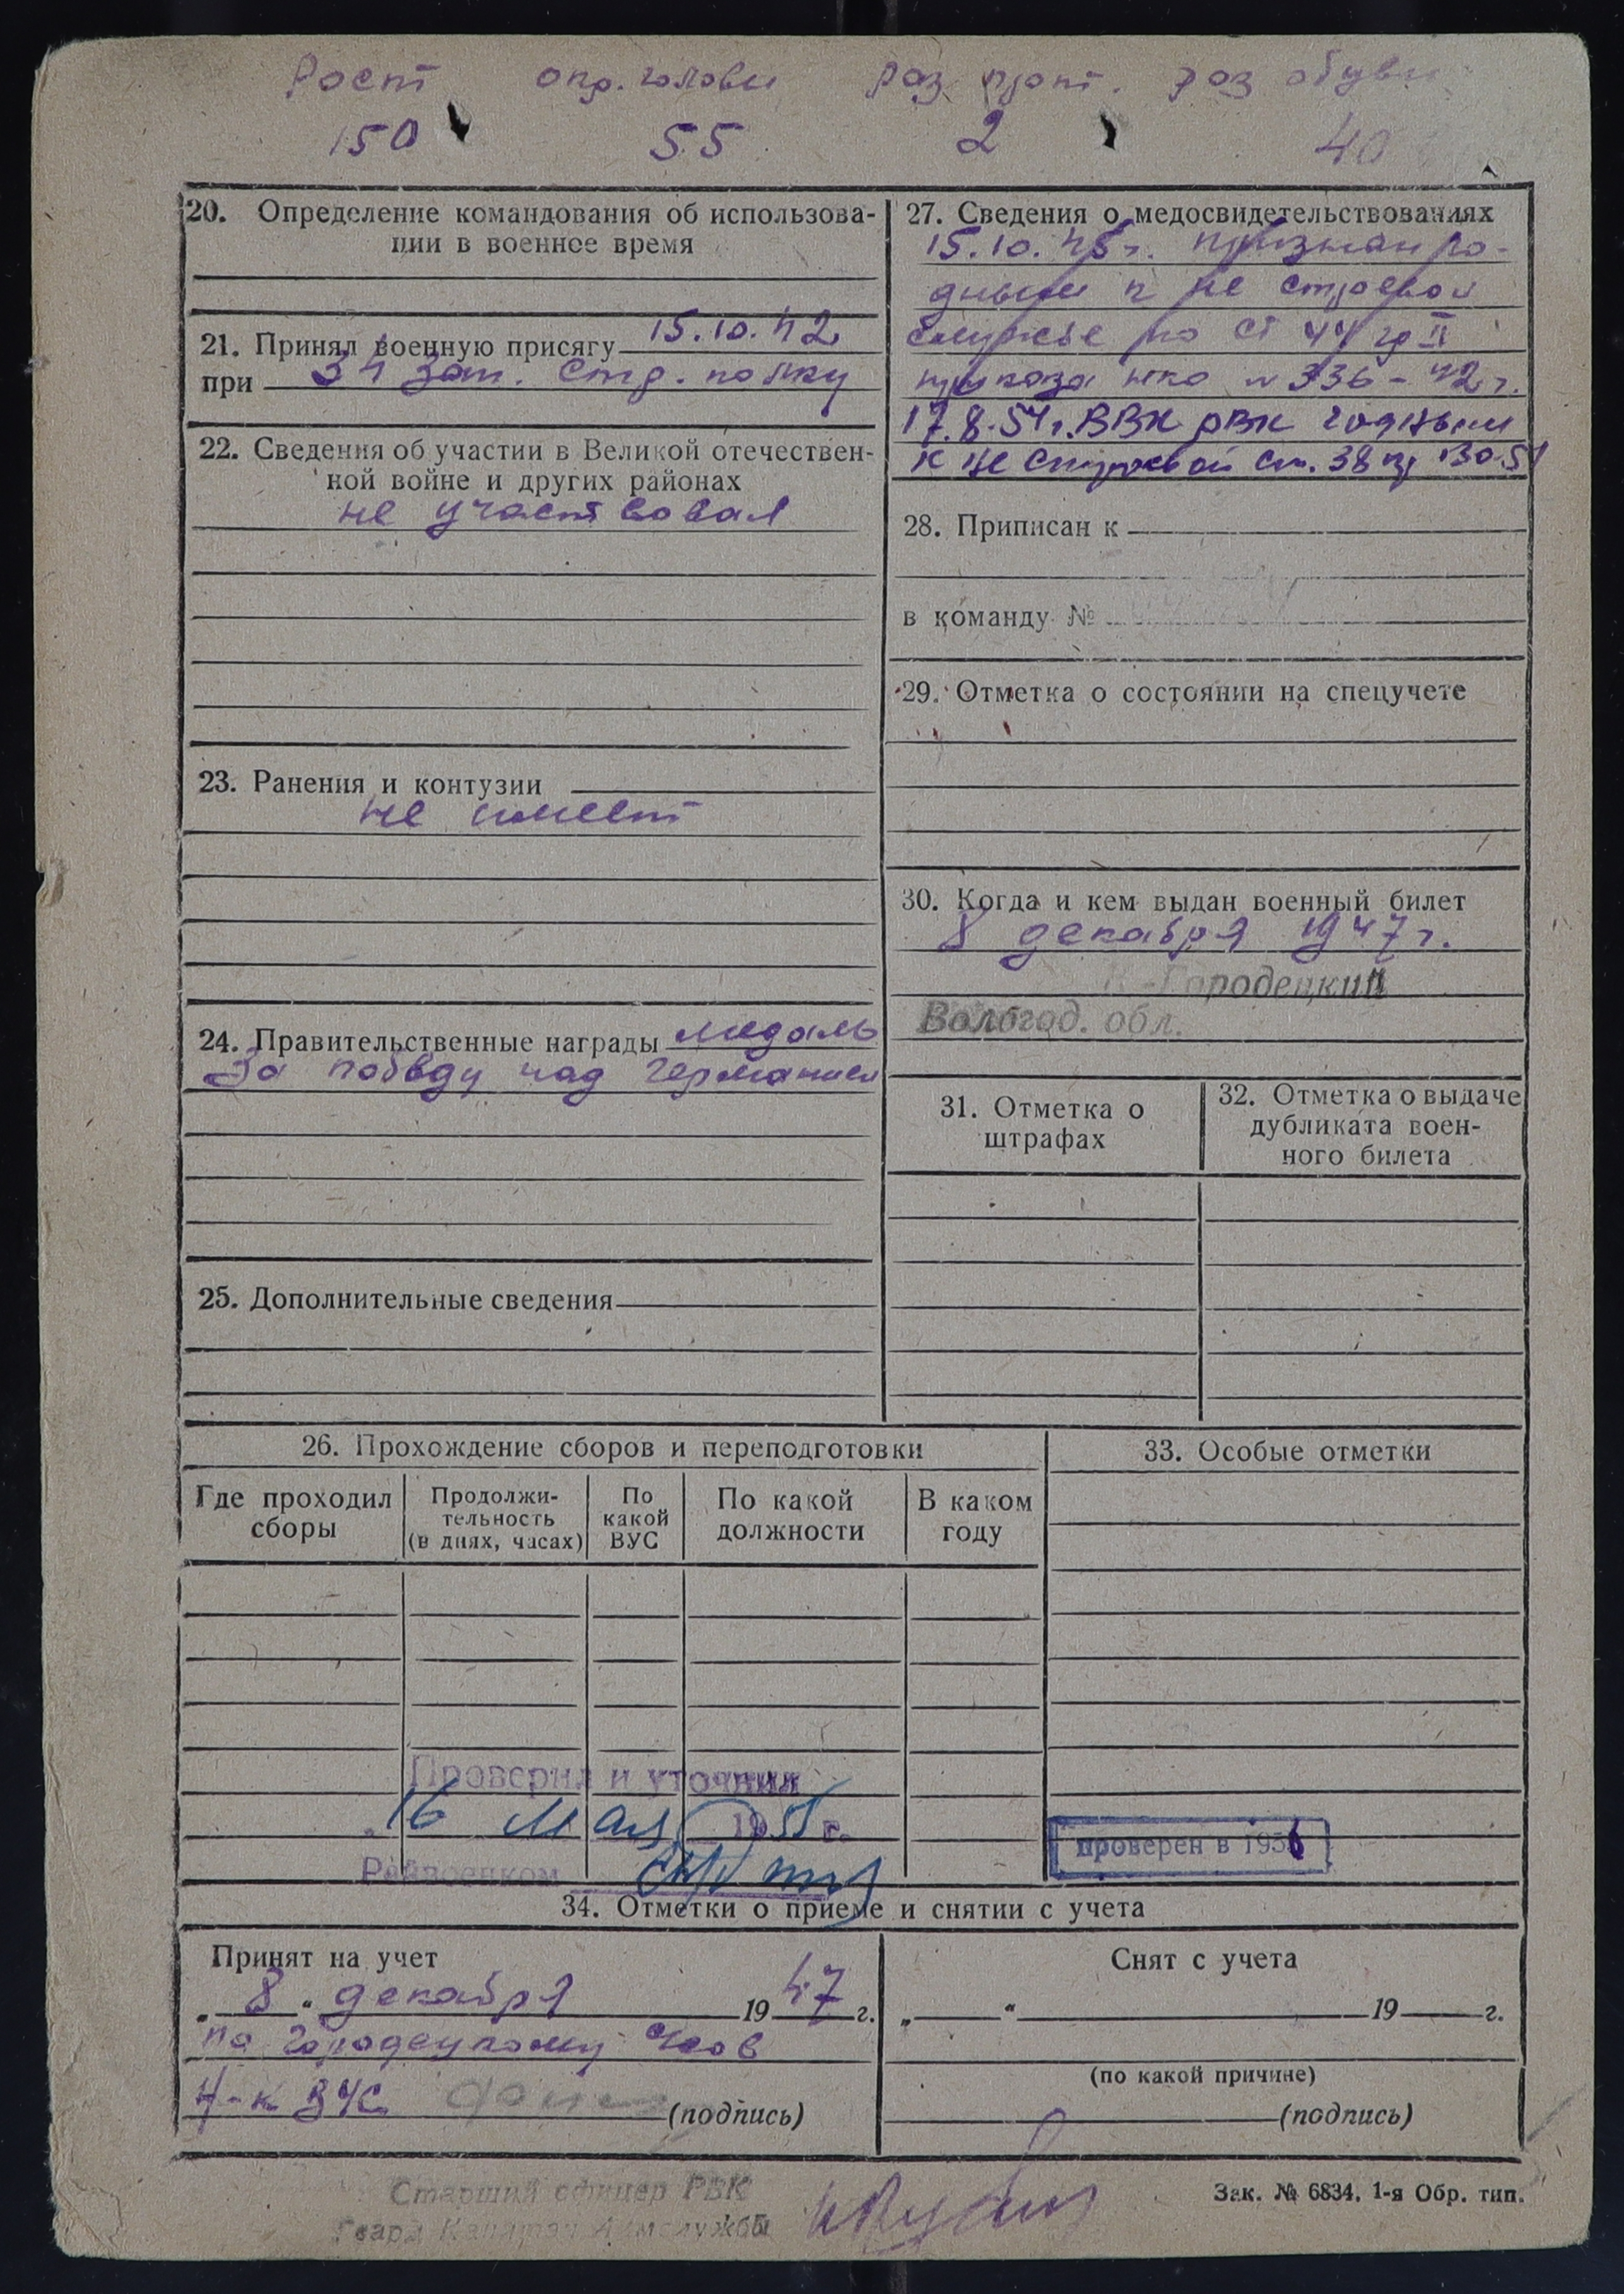 Рост окр. головы раз. прот. раз обуви
150 55 2 40
20. Определение командования об использова-
нии в военное время
21. Принял военную присягу 15.10.42
при 34 зап. стр. полку
22. Сведения об участии в Великой отечествен-
ной войне и других районах
не участвовал
23. Ранения и контузии
не имеет
24. Правительственные награды медаль
За победу над Германией
25. Дополнительные сведения
27. Сведения о медосвидетельствованиях
признан го-
дным к не строевой
службе по ст 44 гр II
приказа нко № 336-42 г.
17.8.54 г. ВВК РВК годным
к не строевой ст. 38 пр
28. Приписан к
в команду №
29. Отметка о состоянии на спецучете
30. Когда и кем выдан военный билет
8 декабря 1947 г.
К-Городецкий
Вологод. обл.
31. Отметка о
штрафах
32. Отметка о выдаче
дубликата воен-
ного билета
26. Прохождение сборов и переподготовки
Где проходил
сборы
Продолжи-
тельность
(в днях, часах)
По
какой
ВУС
По какой
должности
В каком
году
33. Особые отметки
Проверил и уточнил
16 мая 1955 г.
Райвоенком
проверен в 1956
34. Отметки о приеме и снятии с учета
Принят на учет
„ 8 “ декабря 1947 г.
по Городецкому
Н-к ВУС (подпись)
Снят с учета
„ “ 19 г.
(по какой причине)
(подпись)
Старший офицер РВК
Гвард. Капитан Адмслужбы
Зак. № 6834. 1-я Обр. тип.